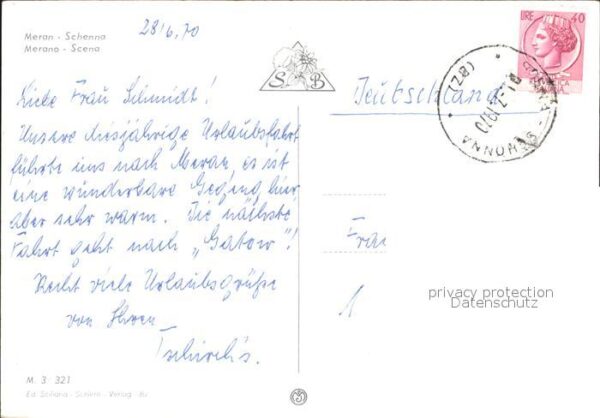 Meran - Schenna
Merano - Scena
28/6.70
LIRE 40
S B
Liebe Frau Schmidt!
Unsere diesjährige Urlaubsfahrt
führte uns nach Meran, es ist
eine wunderbare Gegeng hier,
aber sehr warm. Die nächste
Fahrt geht nach „Gatow"!
Recht viele Urlaubsgrüße
von Ihren
Tschirch's.
Deutschland
SCENA - SCHONNA (BZ)
Frau
1
privacy protection
Datenschutz
M. 3. 321